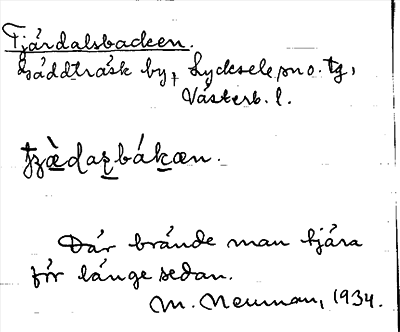 Tjärdalsbacken.
Gäddträsk by, Lycksele sn o. tg,
Västerb. l.
tʒæ̀daʂbákæn.
Där brände man tjära
för länge sedan.
M. Neuman, 1934.